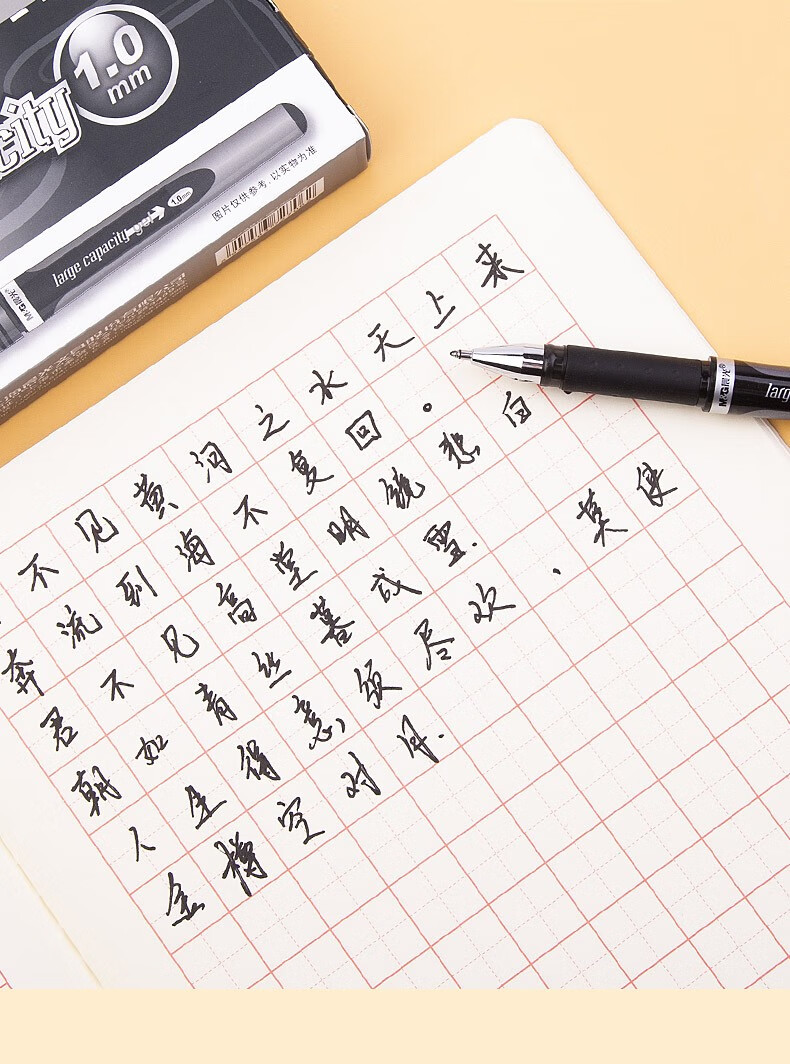 1.0
mm
city
large capacity gel
1.0mm
M&G晨光®
图片仅供参考,以实物为准
不见黄河之水天上来
奔流到海不复回.
君不见高堂明镜悲白
朝如青丝暮成雪.
人生得意须尽欢、莫使
金樽空对月.
M&G晨光®
larg